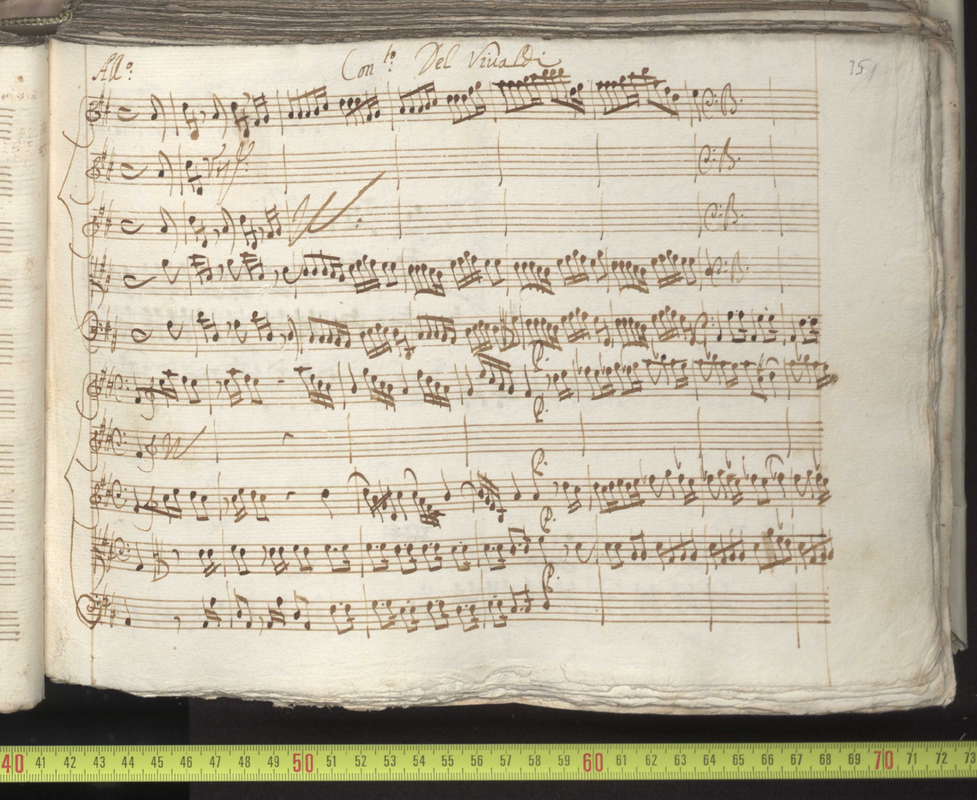 All.º Con.to Del Vivaldi 35
Vnis.
P.
P.
P.
P.
P.
40 41 42 43 44 45 46 47 48 49 50 51 52 53 54 55 56 57 58 59 60 61 62 63 64 65 66 67 68 69 70 71 72 73